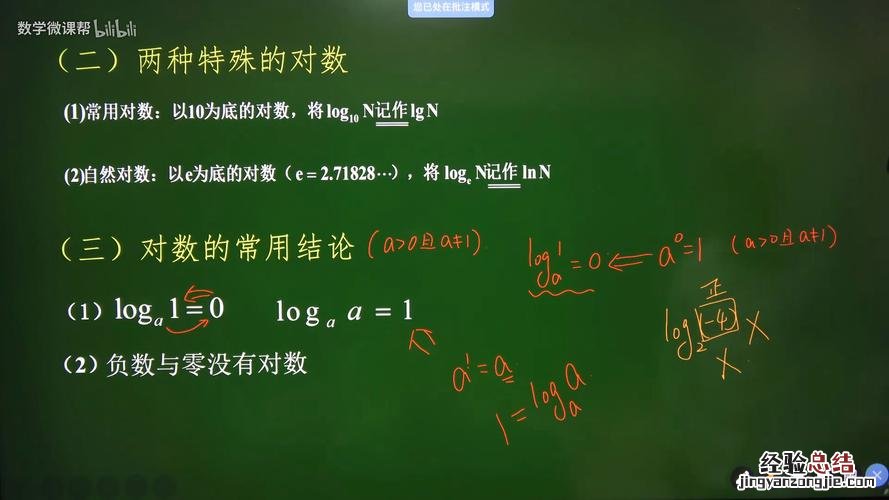 您已处在批注模式
数学微课帮 bilibili
（二）两种特殊的对数
(1)常用对数：以10为底的对数，将log₁₀ N记作lg N
(2)自然对数：以e为底的对数（e = 2.71828…），将 logₑ N记作ln N
（三）对数的常用结论 (a>0且a≠1)
logₐ1=0 ← a⁰=1 (a>0且a≠1)
（1）logₐ1=0 logₐ a = 1
正
log₂(-4) X
X
（2）负数与零没有对数
a¹=a
1=logₐa
经验总结
jingyanzongjie.com